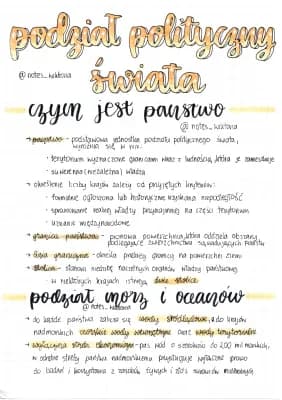 podział polityczny
świata
@notes_wiktoria
czym jest państwo
@notes_wiktoria
→ państwo - podstawowa jednostka podziału politycznego świata,
wyróżnia się w nim:
· terytorium wyznaczone granicami wraz z ludnością, która je zamieszkuje
· suwerenna (niezależna) władza
→ określenie liczby krajów zależy od przyjętych kryteriów:
· formalnie ogłoszona lub historycznie uzyskana niepodległość
· sprawowanie realnej władzy przynajmniej na części terytorium
· uznanie międzynarodowe
→ granica państwowa - pionowa powierzchnia, która oddziela obszary
podlegające zwierzchnictwu sąsiadujących państw
→ linia graniczna - określa przebieg granicy na powierzchni ziemi
→ stolica - stanowi siedzibę naczelnych organów władzy państwowej
· w niektórych krajach istnieją dwie stolice
podział mórz i oceanów
@notes_wiktoria
→ do każde państwa zalicza się wody śródlądowe, a do krajów
nadmorskich morskie wody wewnętrzne oraz wody terytorialne
→ wyłączna strefa ekonomiczna - pas wód o szerokości do 200 mil morskich,
w obrębie strefy państwu nadmorskiemu przysługuje wyłączne prawo
do badań i korzystania z zasobów żywych i złóż surowców mineralnych.